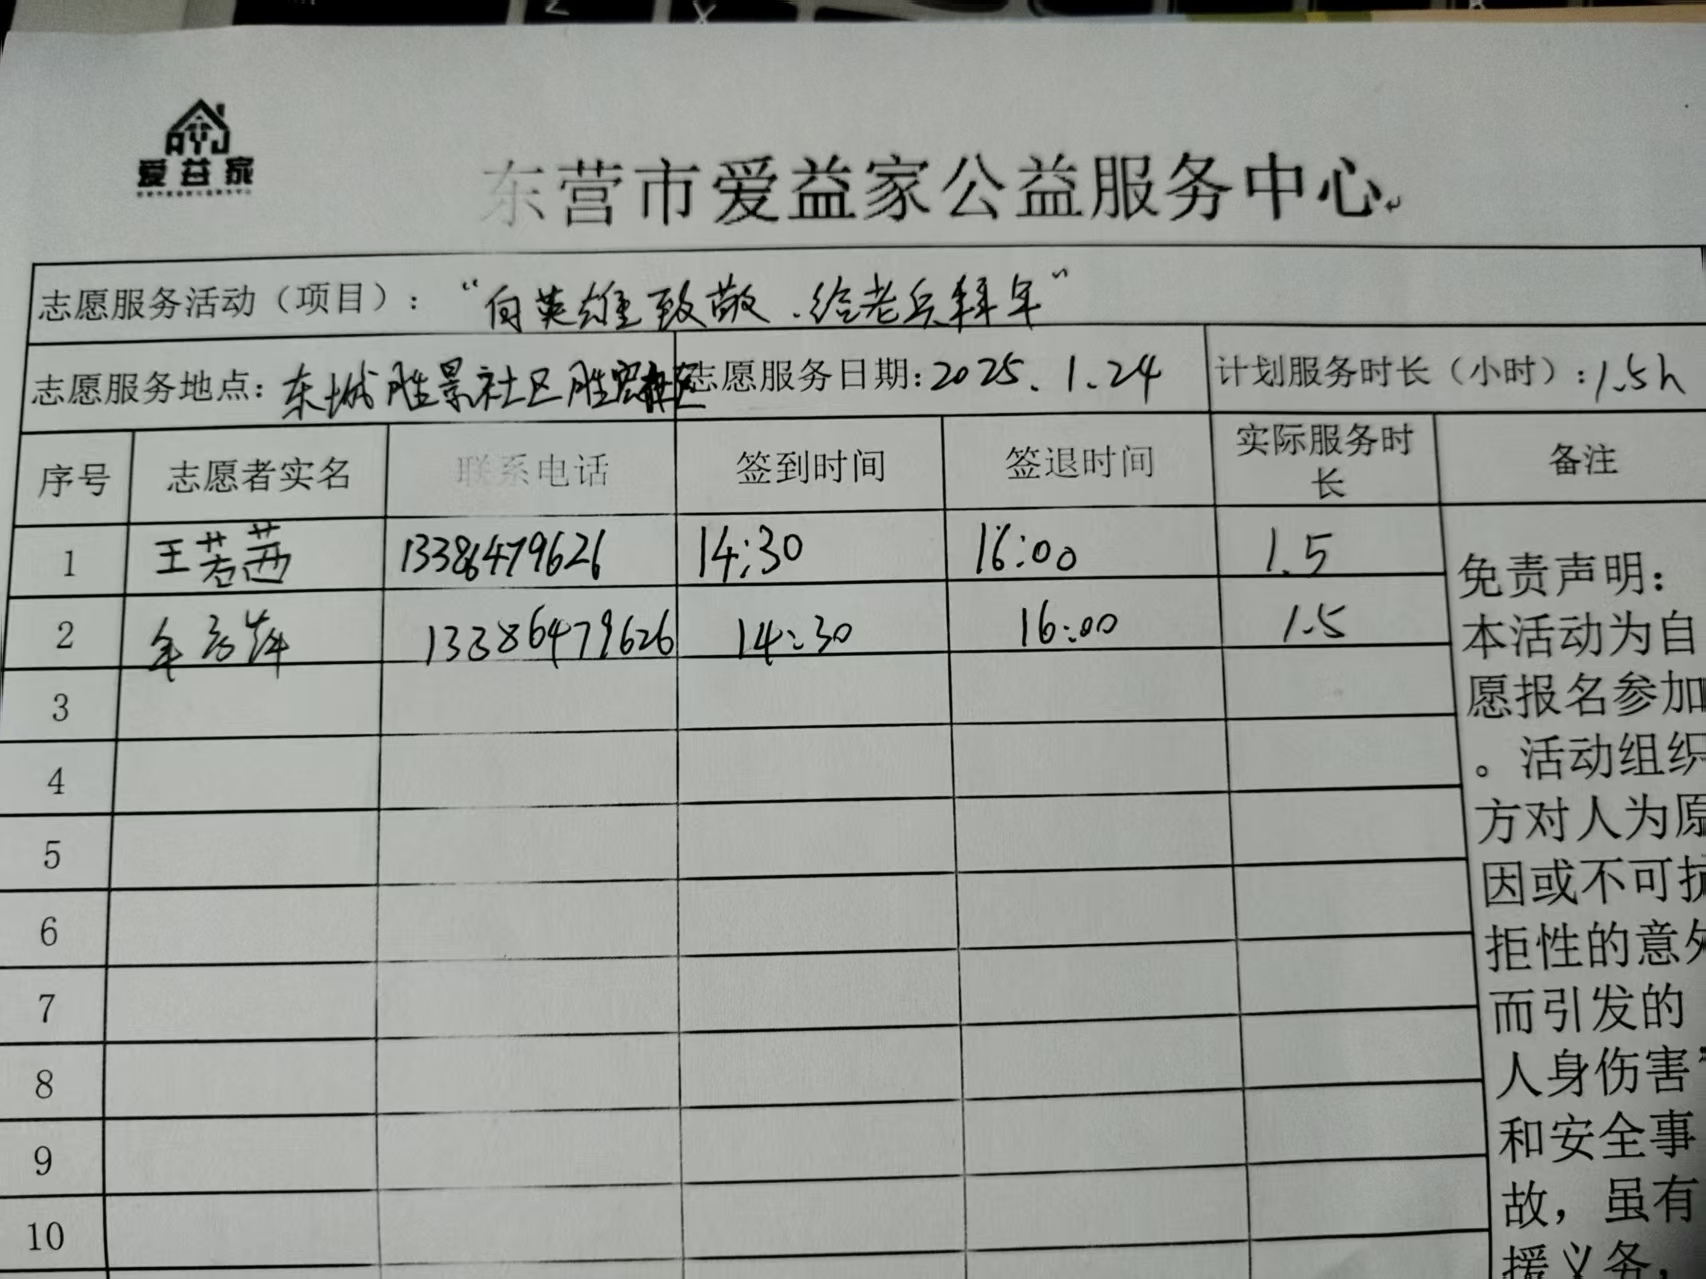 爱益家
东营市爱益家公益服务中心
志愿服务活动（项目）：“向英雄致敬、给老兵拜年”
志愿服务地点：东城胜景社区胜宏社区 志愿服务日期：2025.1.24 计划服务时长（小时）：1.5h
序号 志愿者实名 联系电话 签到时间 签退时间 实际服务时长 备注
1 王若茜 13386479626 14:30 16:00 1.5
2 13386479626 14:30 16:00 1.5
3
4
5
6
7
8
9
10
免责声明：
本活动为自
愿报名参加
。活动组织
方对人为原
因或不可抗
拒性的意外
而引发的
人身伤害
和安全事
故，虽有
援义务，